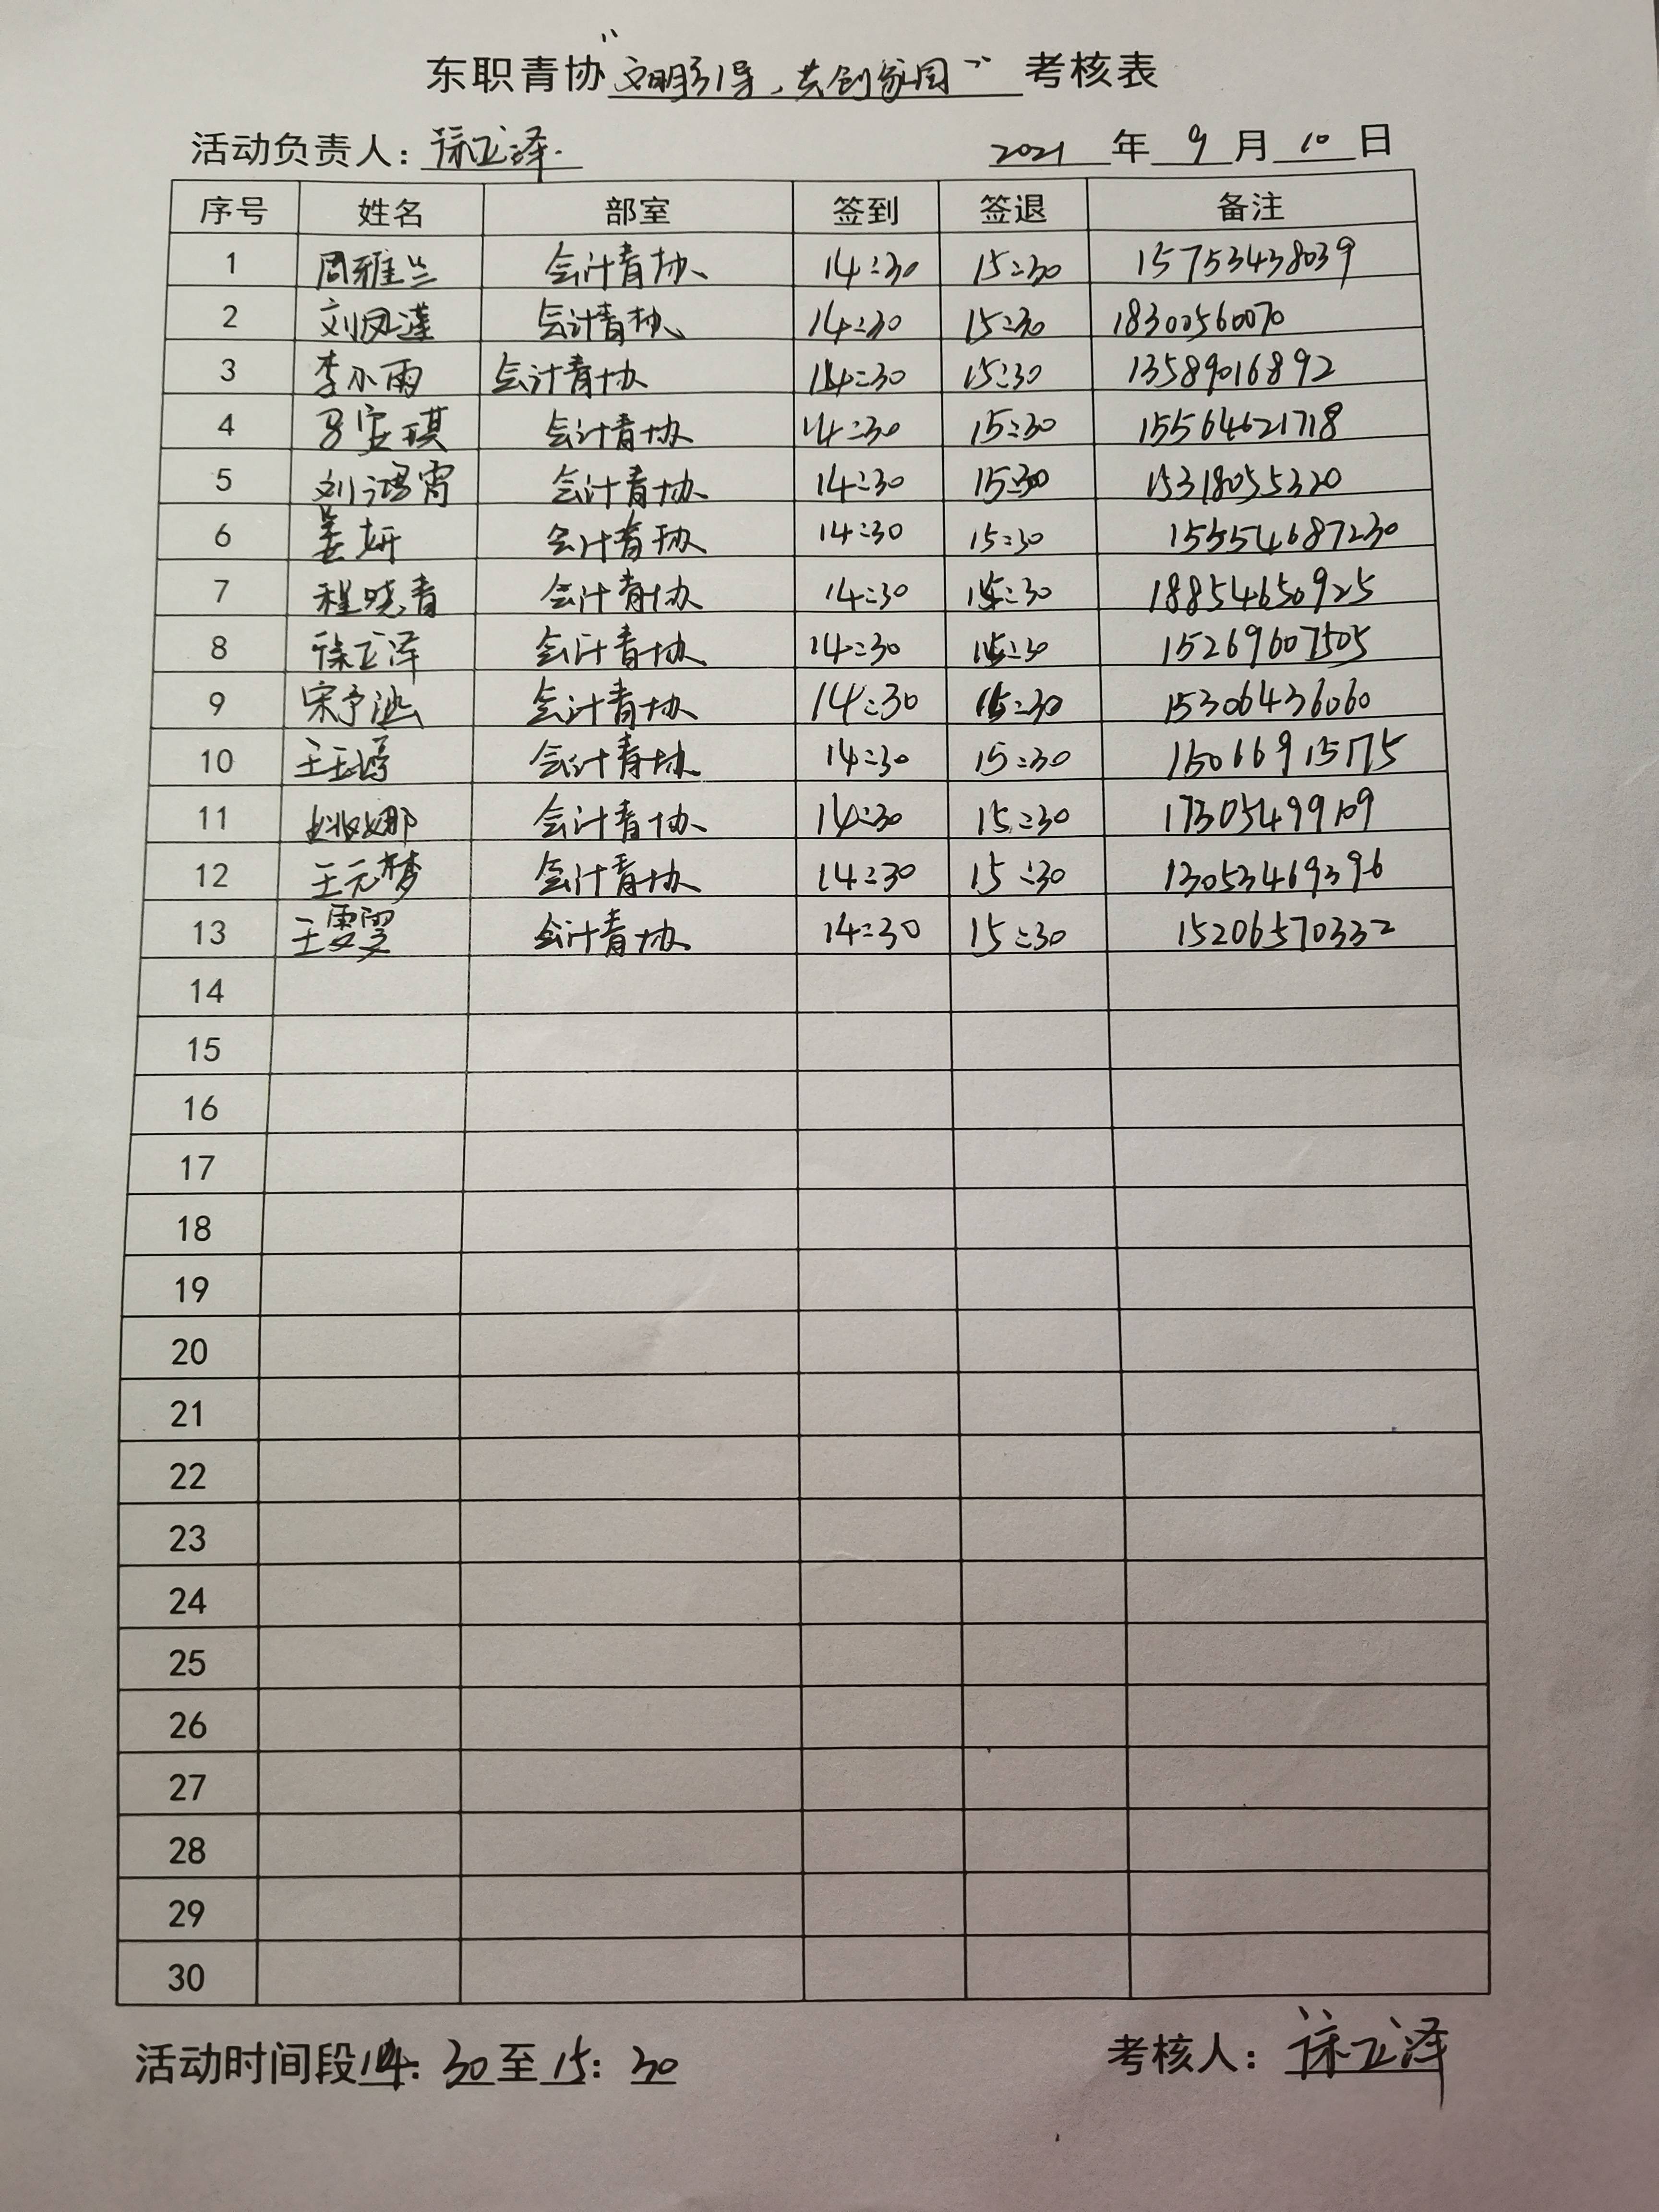 东职青协“文明引导,共创家园”考核表
活动负责人:徐正泽. 2021年9月10日
序号 姓名 部室 签到 签退 备注
1 周雅兰 会计青协 14:30 15:30 15753438039
2 刘凤瑾 会计青协 14:30 15:30 18300560070
3 李小雨 会计青协 14:30 15:30 13589016892
4 马宝琪 会计青协 14:30 15:30 15564621718
5 刘鸿霄 会计青协 14:30 15:30 15318055320
6 姜妍 会计青协 14:30 15:30 155554687230
7 程晓青 会计青协 14:30 15:30 18854650925
8 徐正泽 会计青协 14:30 15:30 15269607505
9 宋予涵 会计青协 14:30 15:30 15306436060
10 会计青协 14:30 15:30 15066915775
11 姚娜 会计青协 14:30 15:30 17305499109
12 王元梦 会计青协 14:30 15:30 13053469396
13 王雯雯 会计青协 14:30 15:30 15206570332
14
15
16
17
18
19
20
21
22
23
24
25
26
27
28
29
30
活动时间段14:30至15:30 考核人:徐正泽